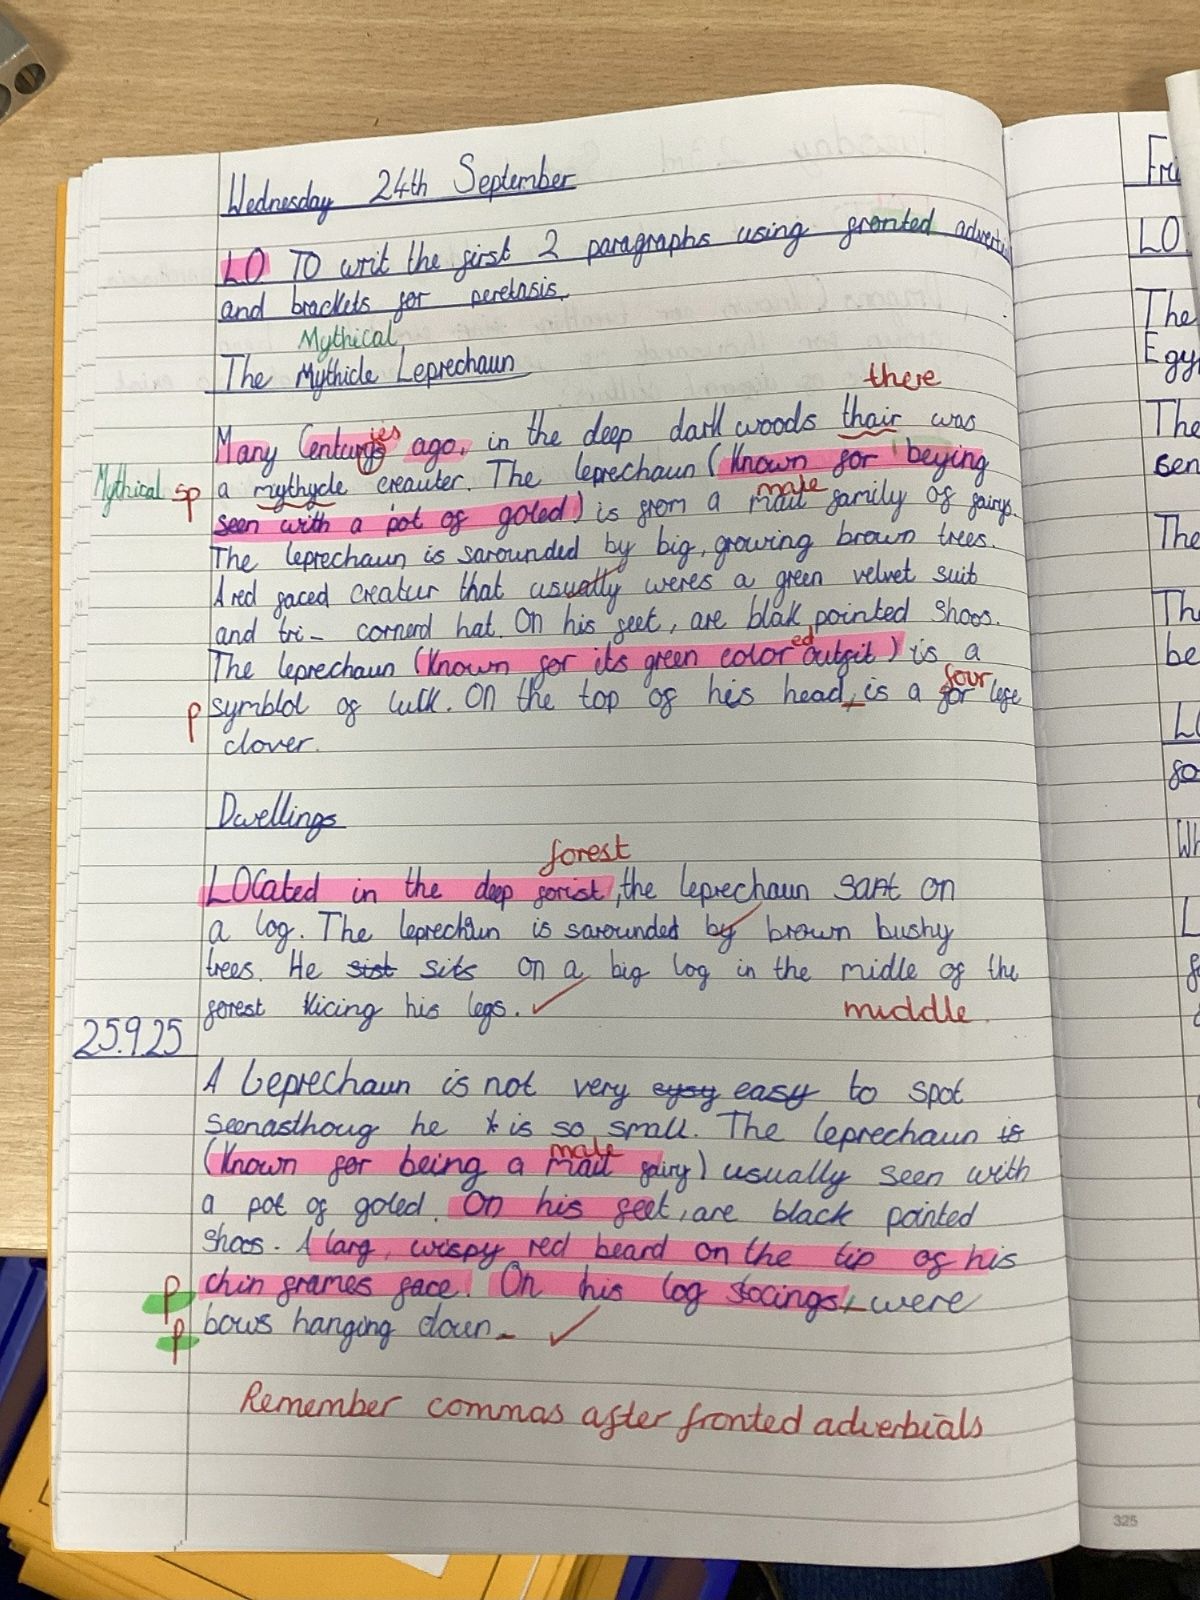 Wednesday 24th September
LO TO writ the first 2 paragraphs using fronted
and brackets for peretasis.
Mythical
The Mythicle Leprechaun
there
Many Centurys ies ago, in the deep dark woods thair was
Mythical sp a mythycle creauter. The leprechaun (Known for beying
male
seen with a pot of goled) is from a mail family of fairys.
The leprechaun is sarounded by big, growing brown trees.
A red faced creatur that usually weres a green velvet suit
and tri- cornerd hat. On his feet, are blak pointed shoos.
The leprechaun (Known for its green colored outfit) is a
four
p symblol of luck. On the top of his head, is a for lefe
clover.
Dwellings
forest
LOCated in the deep forist, the leprechaun SAAt on
a log. The leprechaun is sarounded by brown bushy
trees. He sist sits on a big log in the midle of the
forest kicing his legs.
middle
25.9.25
A Leprechaun is not very eysy easy to spot
Seenasthoug he is so small. The leprechaun is
male
(Known for being a mail fairy) usually seen with
a pot of goled. On his feet, are black pointed
shoos. A larg, wispy red beard on the tip of his
p chin frames face. On his log stocings, were
p bows hanging down.
Remember commas after fronted adverbials
Fri
LO
The
Egy
The
sen
The
Th
be
LO
so
Wh
L
325